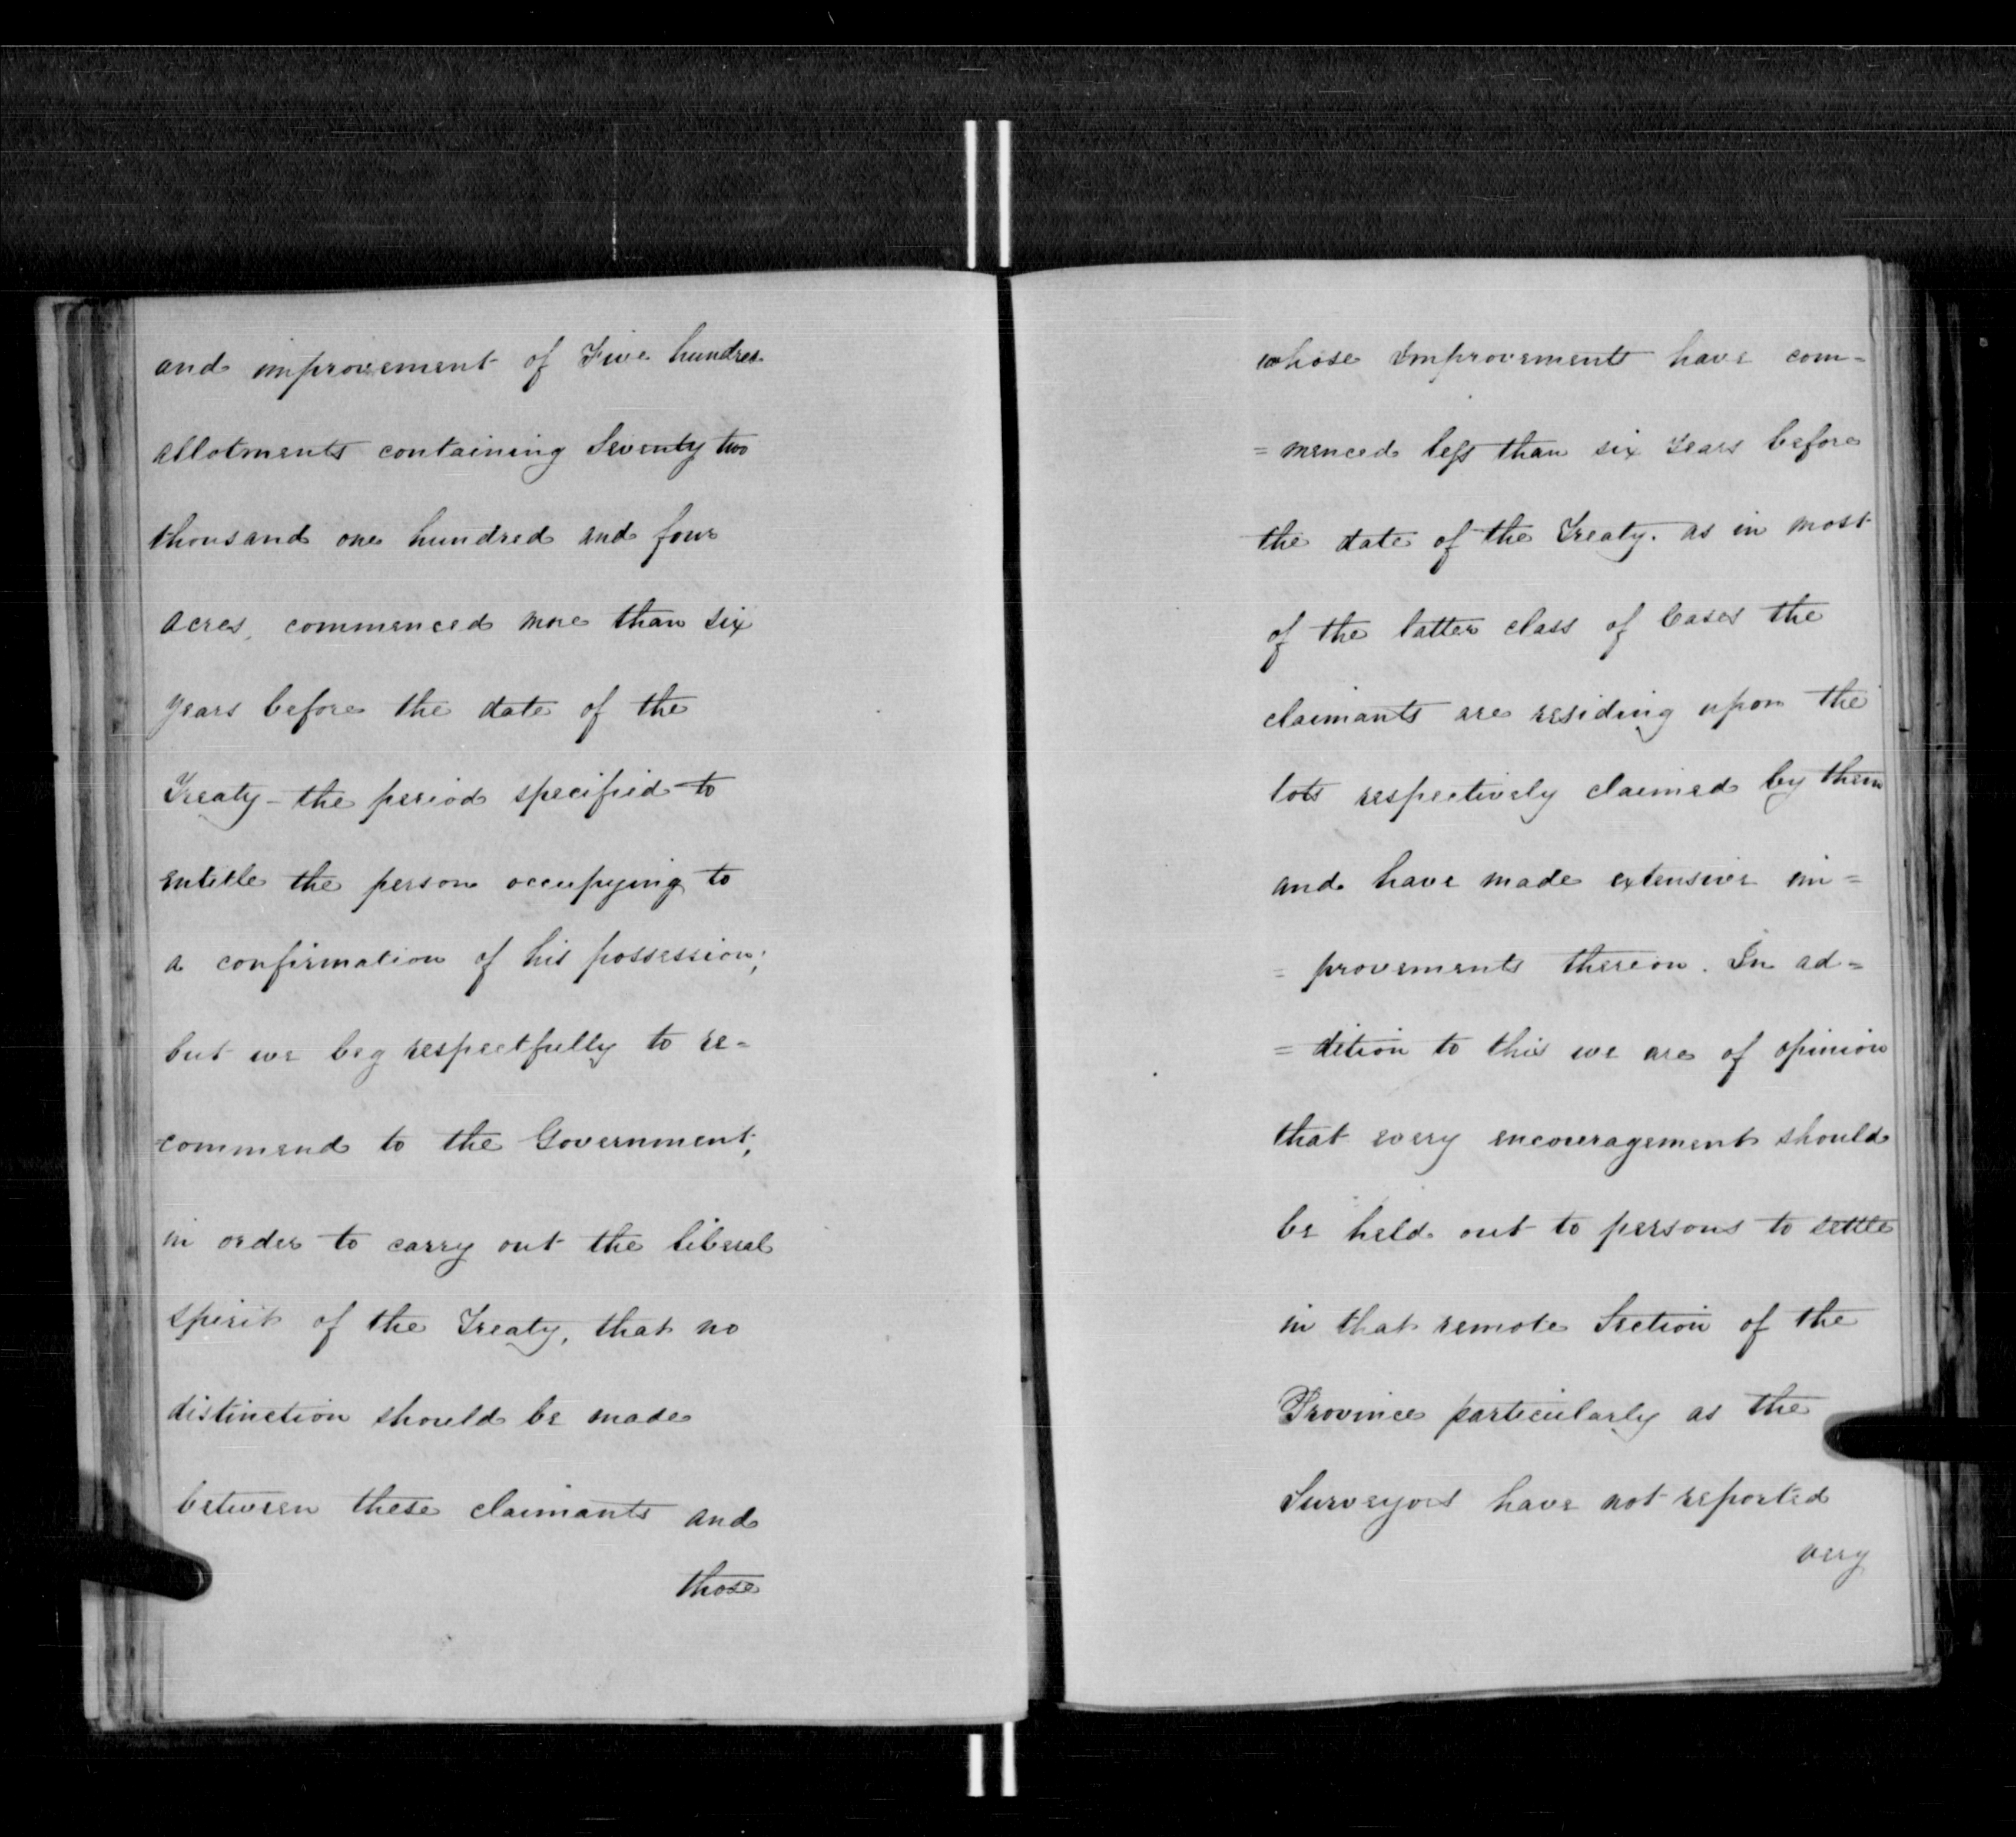 and improvement of Five hundred
allotments containing Seventy two
thousand one hundred and four
acres, commenced more than six
years before the date of the
Treaty - the period specified to
entitle the person occupying to
a confirmation of his possession;
but we beg respectfully to re=
=commend to the Government,
in order to carry out the liberal
spirit of the Treaty, that no
distinction should be made
between these claimants and
those
whose Improvements have com=
=menced less than six years before
the date of the Treaty. as in most
of the latter class of Cases the
claimants are residing upon the
lots respectively claimed by them
and have made extensive im=
=provements thereon. In ad=
=dition to this we are of opinion
that every encouragement should
be held out to persons to settle
in that remote Section of the
Province particularly as the
Surveyors have not reported
very